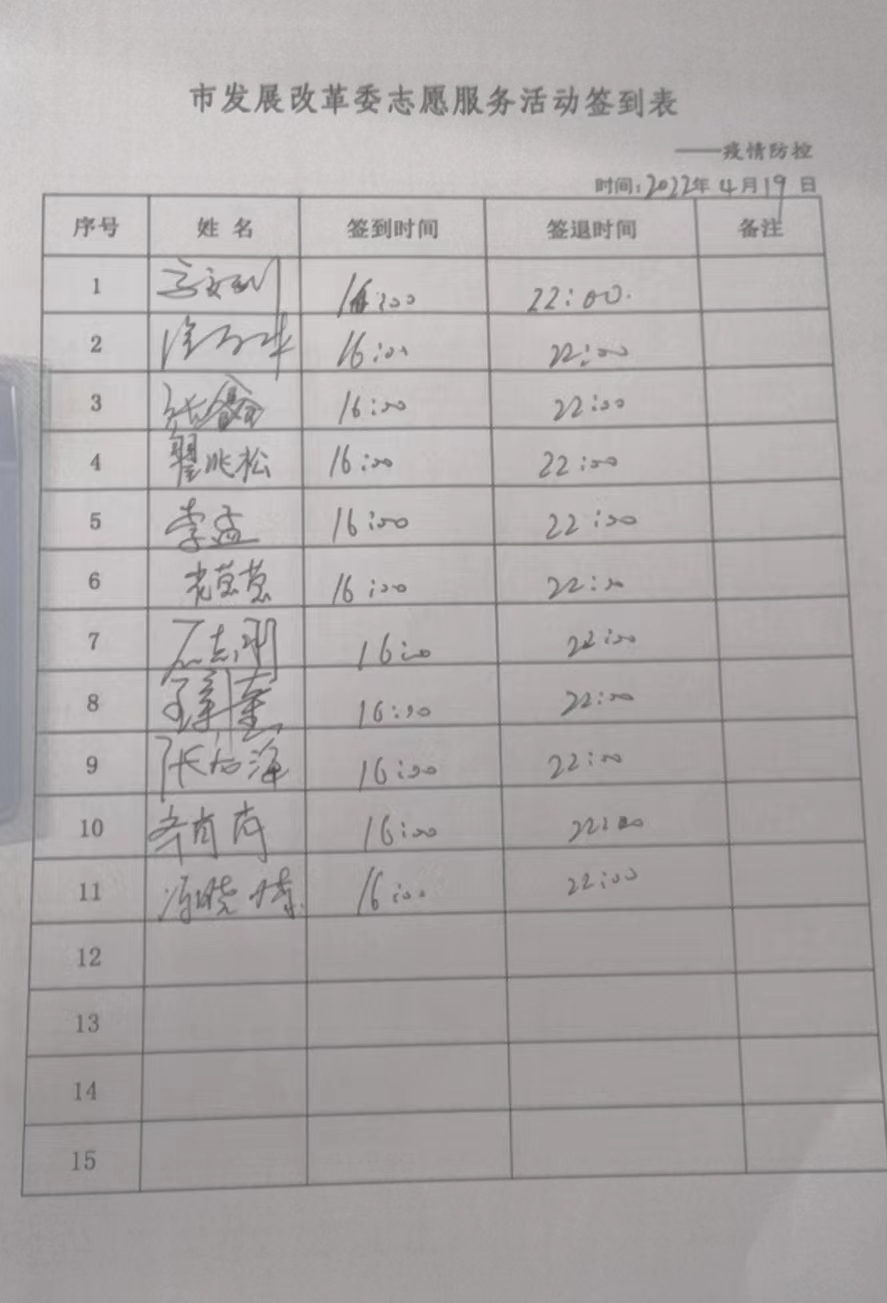 市发展改革委志愿服务活动签到表
——疫情防控
时间:2022年 4月19日
序号 姓 名 签到时间 签退时间 备注
1 16:00 22:00.
2 16:00 22:00
3 16:00 22:00
4 翟兆松 16:00 22:00
5 李孟 16:00 22:00
6 16:00 22:00
7 石志刚 16:00 22:00
8 16:00 22:00
9 16:00 22:00
10 16:00 22:00
11 16:00 22:00
12
13
14
15